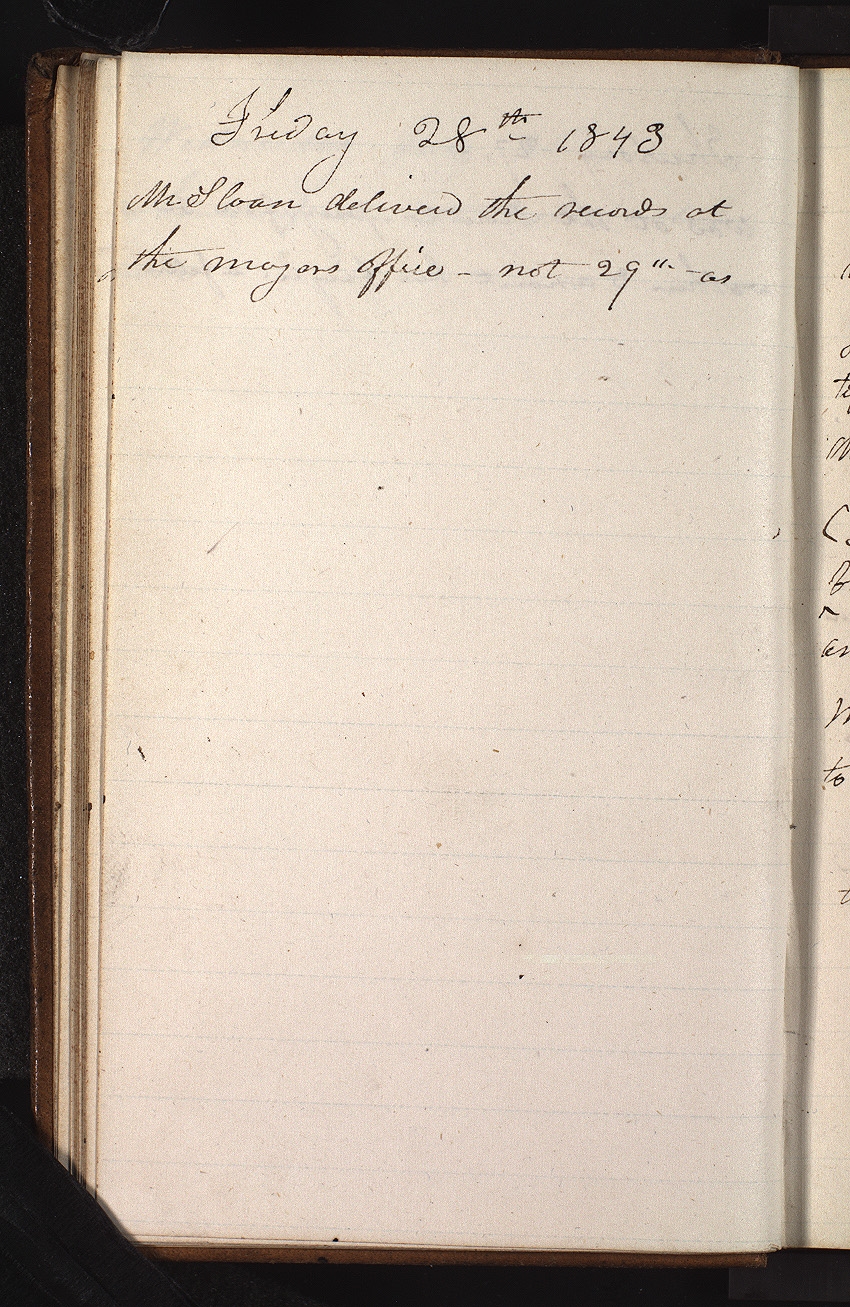 Friday 28th 1843
Mr Sloan deliverd the records at
the mayors office - not 29th - as
te
an
to